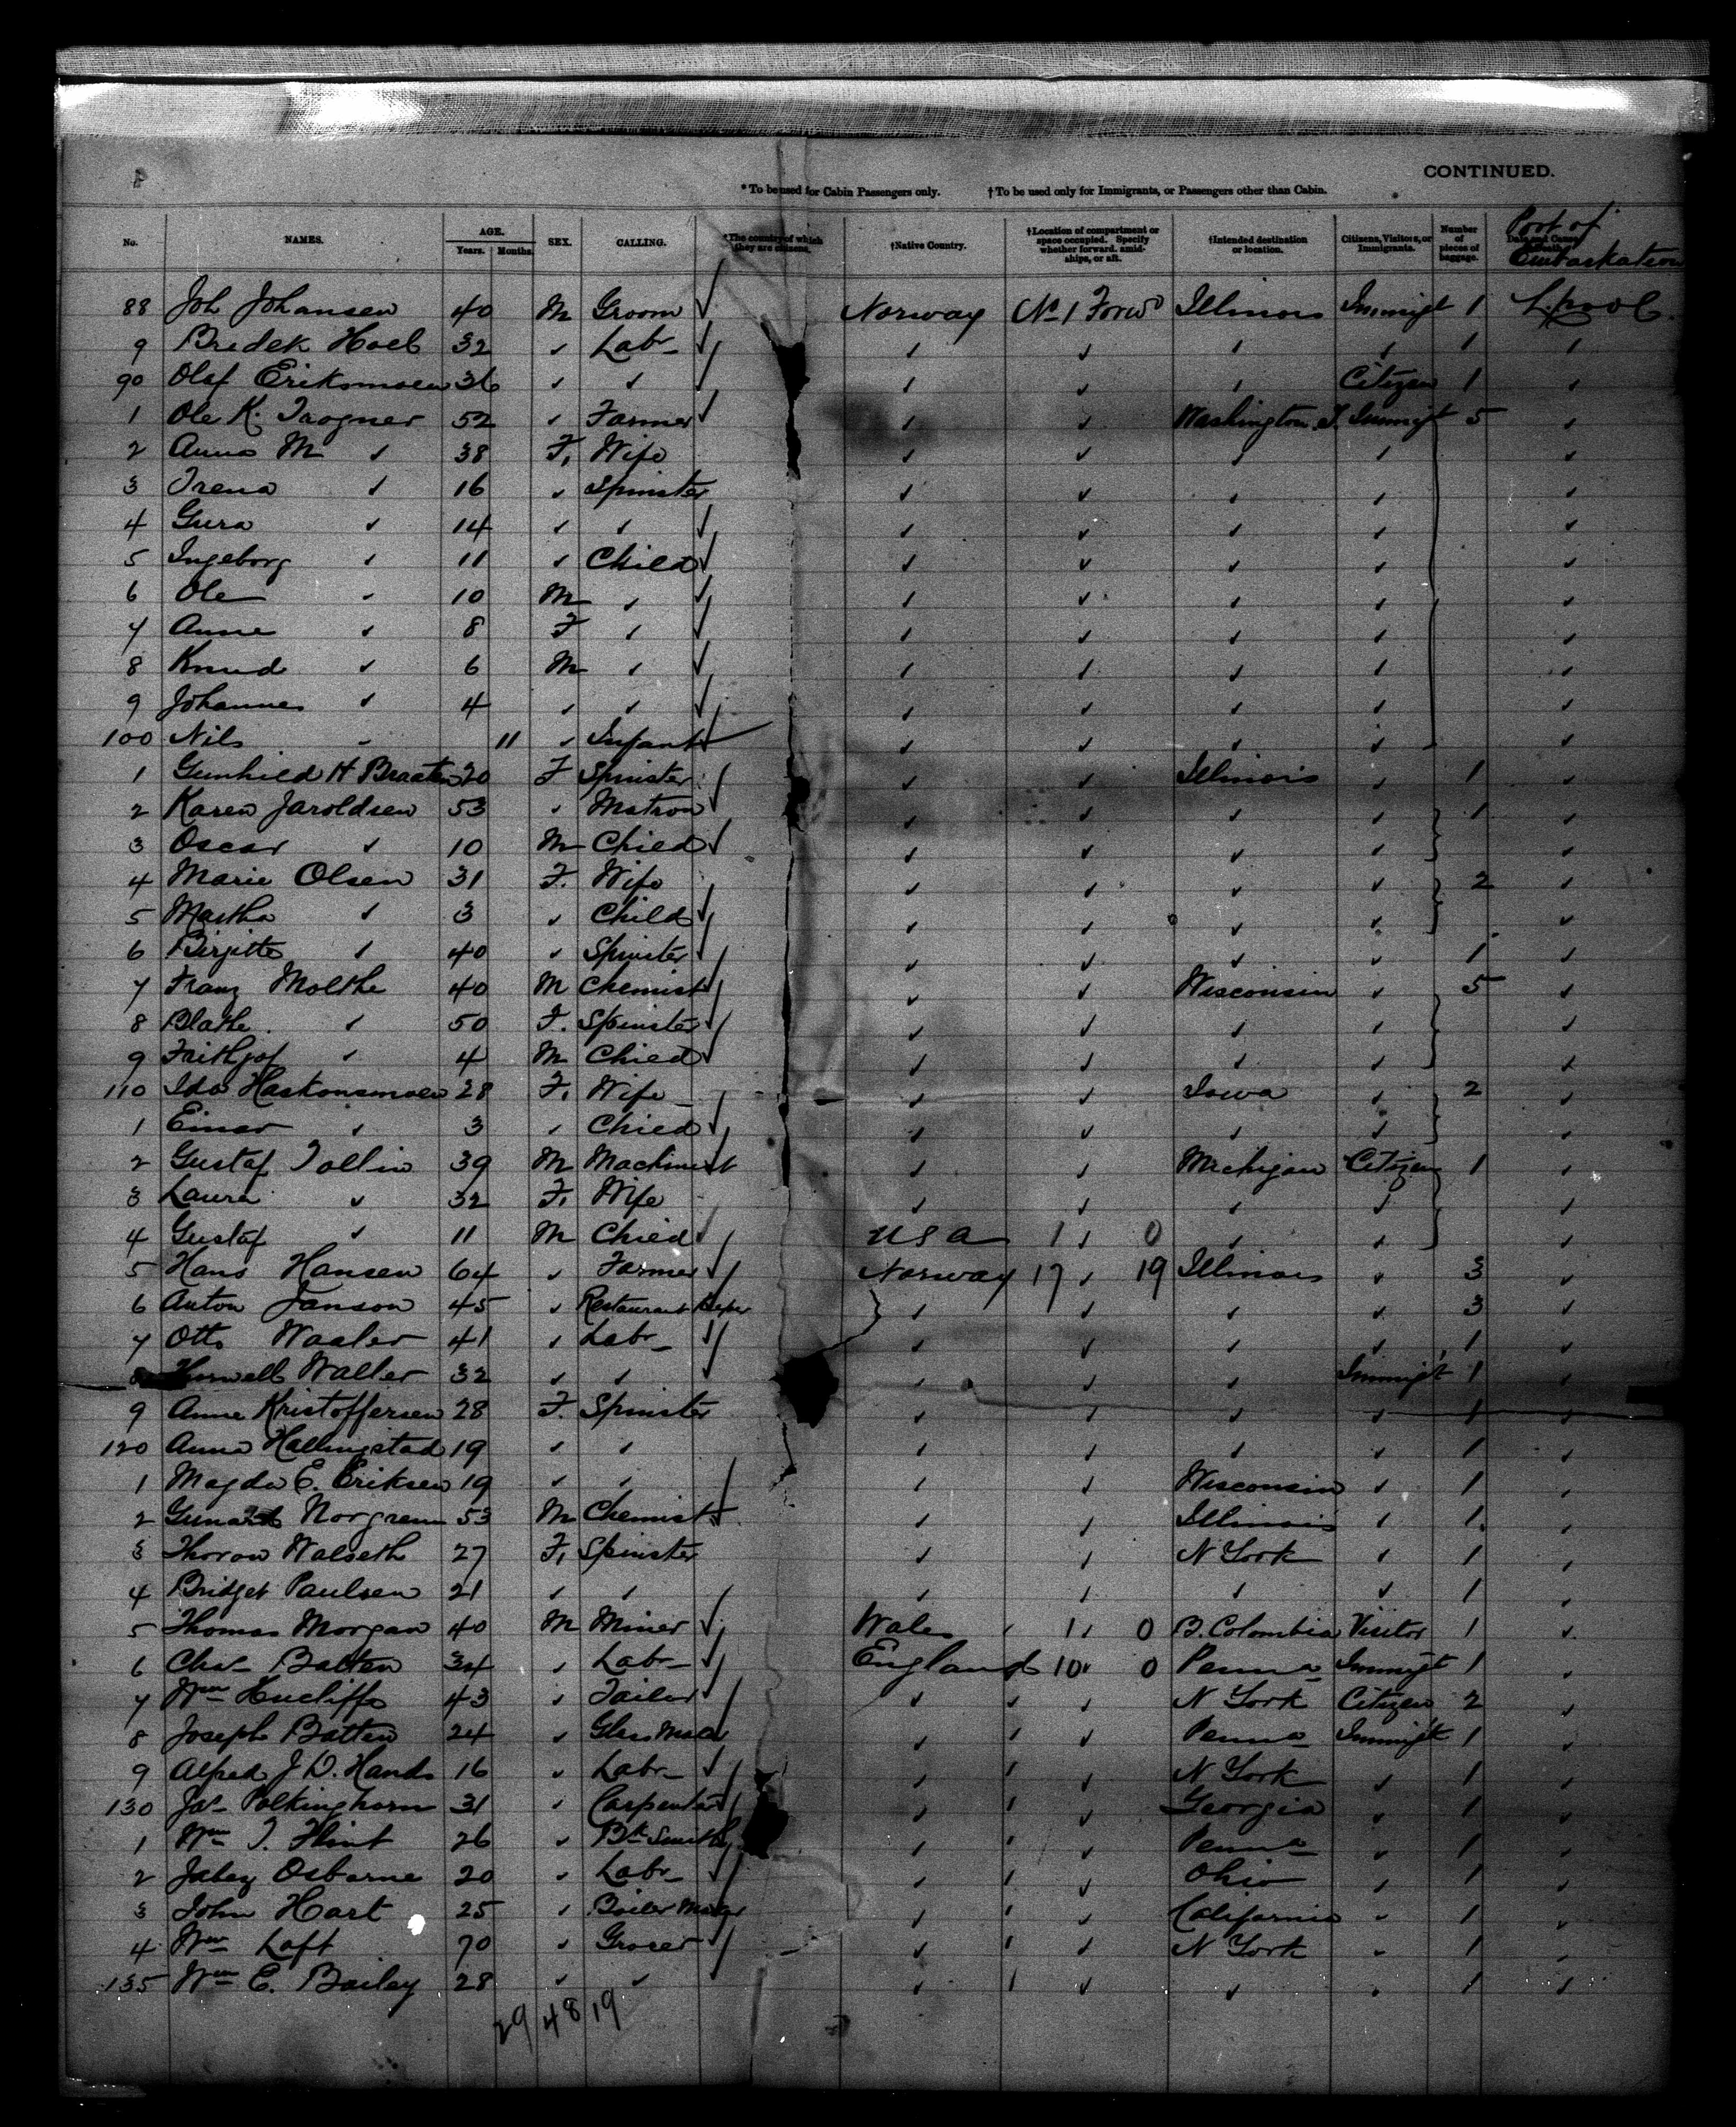 CONTINUED.
* To be used for Cabin Passengers only. † To be used only for Immigrants, or Passengers other than Cabin.
No. NAMES. AGE. Years. Months. SEX. CALLING. *The country of which they are citizens. †Native Country. †Location of compartment or space occupied. Specify whether forward, amidships, or aft. †Intended destination or location. Citizens, Visitors, or Immigrants. Number of pieces of baggage. Port of Embarkation
88 Joh Johansen 40 M Groom ✓ Norway No 1 Forwd Illinois Immigt 1 L.pool
9 Bredek Hoel 32 ✓ Labr ✓ ✓ ✓ ✓ ✓ 1 ✓
90 Olaf Eriksmoen 36 ✓ ✓ ✓ ✓ ✓ ✓ Citizen 1 ✓
1 Ole K. Trogner 52 ✓ Farmer ✓ ✓ ✓ Washington T. Immigt 5 ✓
2 Anna M ✓ 38 F. Wife ✓ ✓ ✓ ✓ ✓
3 Trena ✓ 16 ✓ Spinster ✓ ✓ ✓ ✓ ✓
4 Gura ✓ 14 ✓ ✓ ✓ ✓ ✓ ✓ ✓ ✓
5 Ingeborg ✓ 11 ✓ Child ✓ ✓ ✓ ✓ ✓ ✓
6 Ole ✓ 10 M ✓ ✓ ✓ ✓ ✓ ✓ ✓
7 Anne ✓ 8 F ✓ ✓ ✓ ✓ ✓ ✓ ✓
8 Knud ✓ 6 M ✓ ✓ ✓ ✓ ✓ ✓ ✓
9 Johannes ✓ 4 ✓ ✓ ✓ ✓ ✓ ✓ ✓ ✓
100 Nils ✓ 11 ✓ Infant ✓ ✓ ✓ ✓ ✓ ✓
1 Gunhild H Braaten 20 F Spinster ✓ ✓ ✓ Illinois ✓ 1 ✓
2 Karen Jaroldsen 53 ✓ Matron ✓ ✓ ✓ ✓ ✓ 1 ✓
3 Oscar ✓ 10 M Child ✓ ✓ ✓ ✓ ✓ ✓
4 Marie Olsen 31 F. Wife ✓ ✓ ✓ ✓ 2 ✓
5 Martha ✓ 3 ✓ Child ✓ ✓ ✓ ✓ ✓ ✓
6 Birgitte ✓ 40 ✓ Spinster ✓ ✓ ✓ ✓ ✓ 1 ✓
7 Franz Molthe 40 M Chemist ✓ ✓ ✓ Wisconsin ✓ 5 ✓
8 Blathe ✓ 50 F. Spinster ✓ ✓ ✓ ✓ ✓ ✓
9 Frithjof ✓ 4 M Child ✓ ✓ ✓ ✓ ✓ ✓
110 Ida Haskonsmoen 28 F. Wife ✓ ✓ Iowa ✓ 2 ✓
1 Einar ✓ 3 ✓ Child ✓ ✓ ✓ ✓ ✓ ✓
2 Gustaf Tollin 39 M Machinist ✓ ✓ Michigan Citizen 1 ✓
3 Laura ✓ 32 F. Wife ✓ ✓ ✓ ✓ ✓
4 Gustaf ✓ 11 M Child ✓ USA 1 ✓ 0 ✓ ✓ ✓
5 Hans Hansen 64 ✓ Farmer ✓ Norway 17 ✓ 19 Illinois ✓ 3 ✓
6 Anton Janson 45 ✓ Restaurant Keeper ✓ ✓ ✓ ✓ 3 ✓
7 Otto Waaler 41 ✓ Labr ✓ ✓ ✓ ✓ ✓ 1 ✓
8 Waller 32 ✓ ✓ ✓ ✓ ✓ ✓ Immigt 1 ✓
9 Anne Kristoffersen 28 F. Spinster ✓ ✓ ✓ ✓ 1 ✓
120 Anna Hallingstad 19 ✓ ✓ ✓ ✓ ✓ ✓ 1 ✓
1 Magda E. Eriksen 19 ✓ ✓ ✓ ✓ Wisconsin ✓ 1 ✓
2 Norgrenn 53 M Chemist ✓ ✓ ✓ Illinois ✓ 1 ✓
3 Thoron Walseth 27 F. Spinster ✓ ✓ N York ✓ 1 ✓
4 Bridget Paulsen 21 ✓ ✓ ✓ ✓ ✓ ✓ 1 ✓
5 Thomas Morgan 40 M Miner ✓ Wales ✓ 1 ✓ 0 B. Colombia Visitor 1 ✓
6 Chas Batten 34 ✓ Labr ✓ England 10 ✓ 0 Penna Immigt 1 ✓
7 Wm Hucliffe 43 ✓ Tailor ✓ ✓ ✓ ✓ N York Citizen 2 ✓
8 Joseph Batten 24 ✓ Glass Maker ✓ ✓ ✓ Penna Immigt 1 ✓
9 Alfred J. D. Hands 16 ✓ Labr ✓ ✓ ✓ ✓ N York ✓ 1 ✓
130 Jas Polkinghorn 31 ✓ Carpenter ✓ ✓ ✓ ✓ Georgia ✓ 1 ✓
1 Wm T. Flint 26 ✓ Bk Smith ✓ ✓ ✓ ✓ Penna ✓ 1 ✓
2 Jabez Osborne 20 ✓ Labr ✓ ✓ ✓ ✓ Ohio ✓ 1 ✓
3 John Hart 25 ✓ Boiler Maker ✓ ✓ ✓ California ✓ 1 ✓
4 Wm Loft 70 ✓ Grocer ✓ ✓ ✓ ✓ N York ✓ 1 ✓
135 Wm E. Bailey 28 ✓ ✓ ✓ ✓ ✓ ✓ ✓ 1 ✓
29 48 19